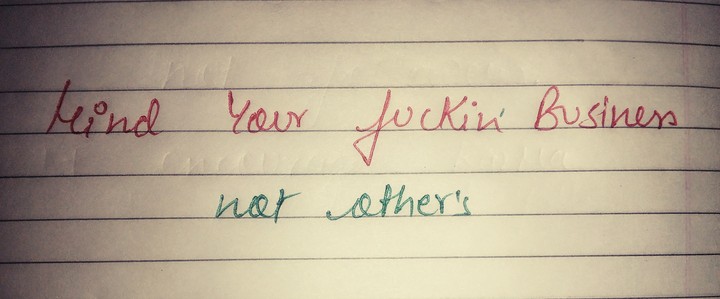 Mind Your fuckin' Business
not other's